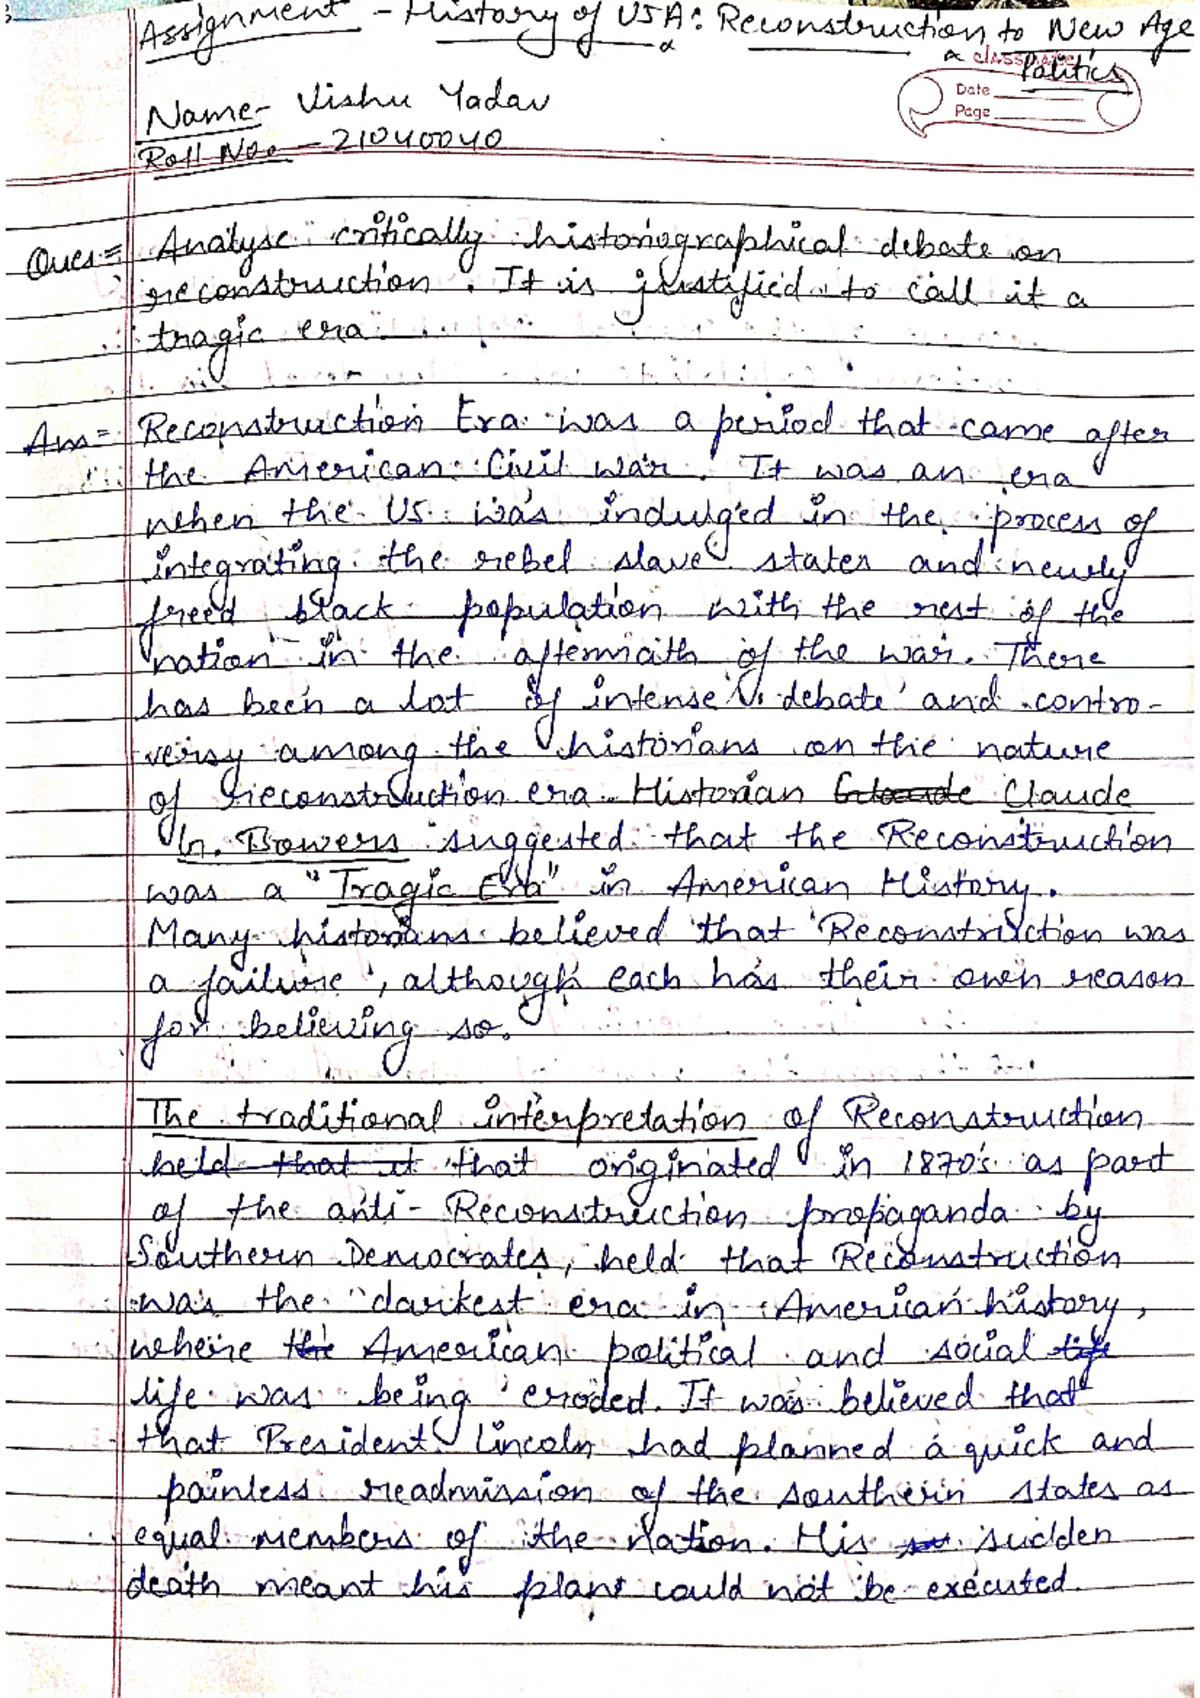 Assignment - History of USA: Reconstruction to New Age
Politics
classmate
Date
Page
Name- Vishu Yadav
Roll No. - 21040040
Ques= Analyse critically historiographical debate on
reconstruction. It is justified to call it a
tragic era
Ans= Reconstruction Era was a period that came after
the American Civil war. It was an era
when the US was indulged in the process of
integrating the rebel slave states and newly
freed black population with the rest of the
nation in the aftermath of the war. There
has been a lot of intense debate and contro-
versy among the historians on the nature
of reconstruction era. Historian Claude
G. Bowers suggested that the Reconstruction
was a "Tragic Era" in American History.
Many historians believed that 'Reconstruction was
a failure', although each has their own reason
for believing so.
The traditional interpretation of Reconstruction
held that it that originated in 1870's as part
of the anti-Reconstruction propaganda by
Southern Democrates, held that Reconstruction
was the darkest era in American history,
where the American political and social life
life was being eroded. It was believed that
that President Lincoln had planned a quick and
painless readmission of the southern states as
equal members of the nation. His sudden
death meant his plans could not be executed.